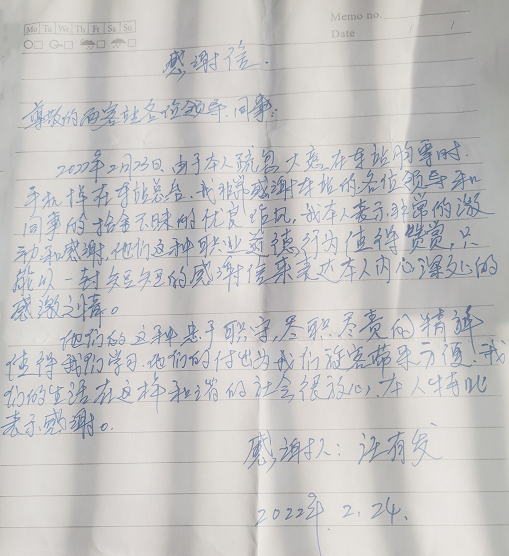 Memo no.
Mo Tu We Th Fr Sa Su
Date
感谢信.
尊敬的西客站各位领导.同事:
2022年2月23日,由于本人疏忽大意在车站购票时.
手机掉在车站总台.我非常感谢车站的各位领导和
同事的拾金不昧的优良作风,我本人表示非常的激
动和感谢,他们这种职业道德行为值得赞赏,只
能以一封短短的感谢信来表达本人内心深处的
感激之情。
他们的这种忠于职守,尽职尽责的精神
值得我们学习.他们的付出为我们旅客带来方便.我
们的生活在这样和谐的社会很放心,本人特此
表示感谢。
感谢人:汪有发
2022年.2.24.